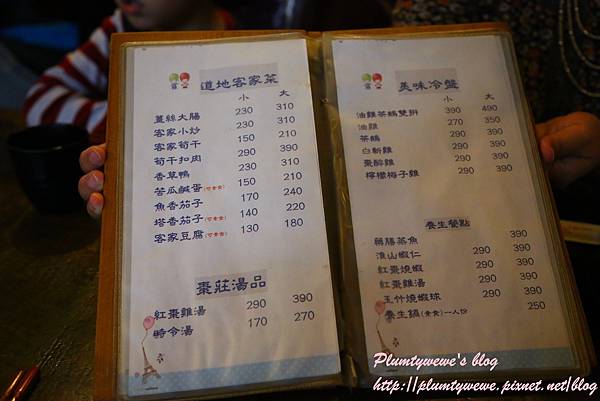 道地客家菜
小 大
薑絲大腸 230 310
客家小炒 230 310
客家筍干 150 210
筍干扣肉 290 390
香草鴨 230 310
苦瓜鹹蛋(可素食) 150 210
魚香茄子 170 240
塔香茄子(可素食) 140 220
客家豆腐(可素食) 130 180
棗莊湯品
紅棗雞湯 290 390
時令湯 170 270
美味冷盤
小 大
油雞茶鵝雙拼 390 490
油雞 270 350
茶鵝 290 390
白斬雞 290 390
棗醉雞 290 390
檸檬梅子雞 290 390
養生餐點
藥膳蒸魚 390
淮山蝦仁 290 390
紅棗燒蝦 290 390
紅棗雞湯 290 390
玉竹燒蝦球 290 390
養生鍋(素食)一人份 250
Plumtywewe's blog
http://plumtywewe.pixnet.net/blog